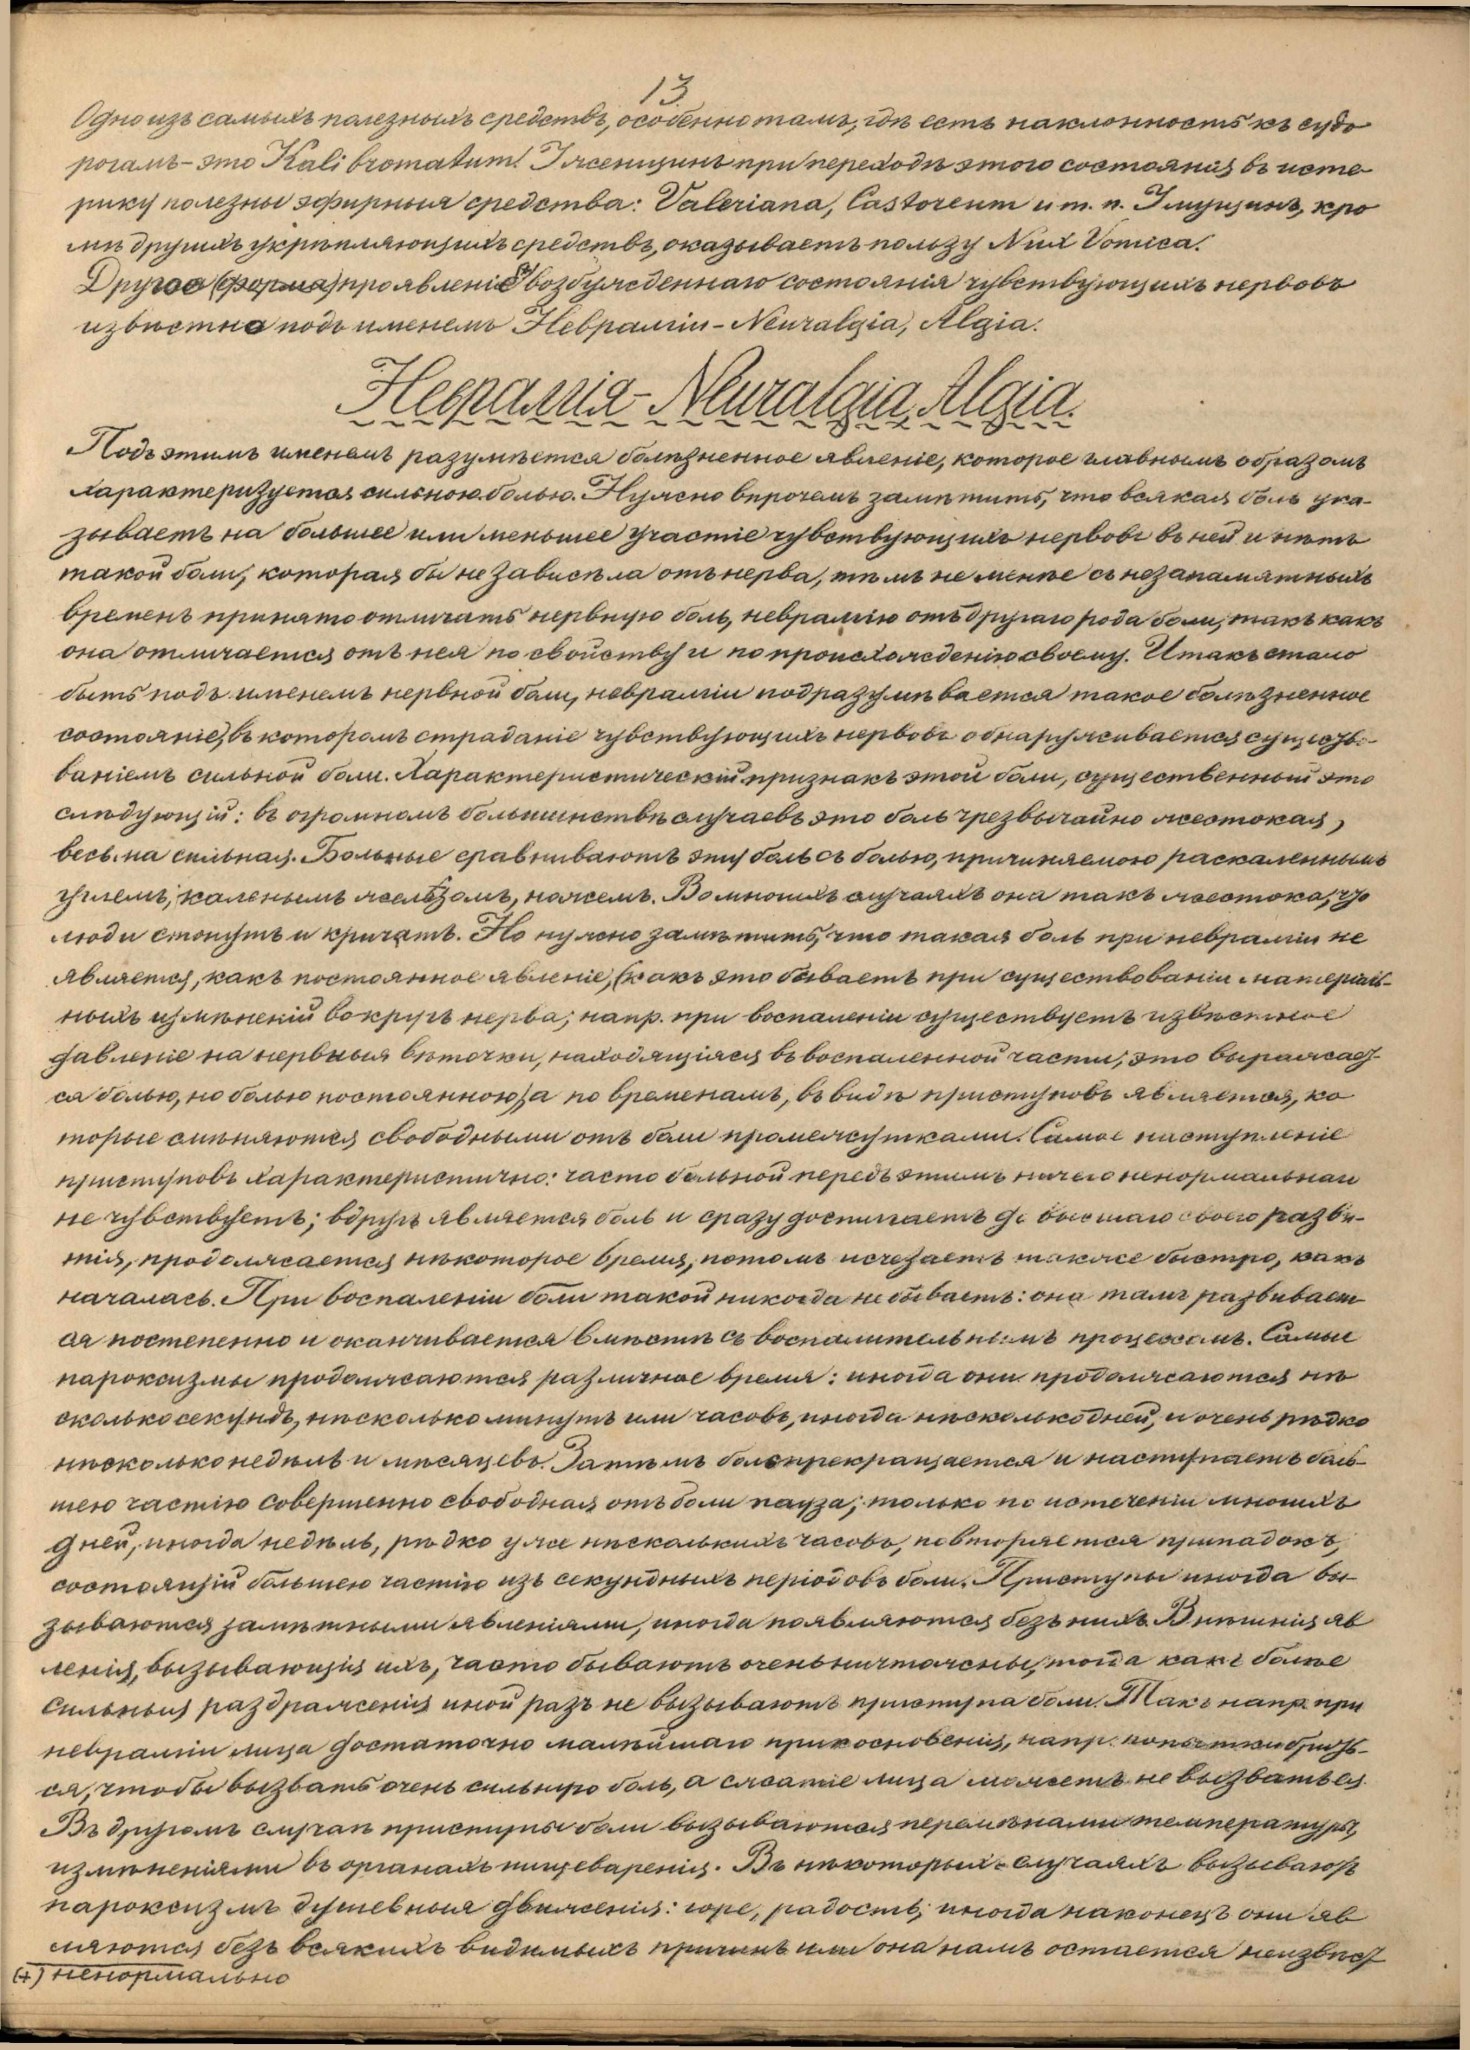 13
Одно изъ самыхъ полезныхъ средствъ, особенно тамъ, гдѣ есть наклонность къ судо
рогамъ - это Kali bromatum! У женщинъ при переходѣ этого состоянія въ исте-
рику полезны эфирныя средства: Valeriana, Castoreum и т. п. У мущинъ, кро
мѣ другихъ укрѣпляющихъ средствъ, оказываетъ пользу Nux Vomica.
Другое (форма) проявленіе возбужденнаго состоянія чувствующихъ нервовъ
извѣстно подъ именемъ Невралгіи - Neuralgia, Algia.
Невралгія - Neuralgia, Algia.
Подъ этимъ именемъ разумѣется болѣзненное явленіе, которое главнымъ образомъ
характеризуется сильною болью. Нужно впрочемъ замѣтить, что всякая боль ука-
зываетъ на большее или меньшее участіе чувствующихъ нервовъ въ ней и нѣтъ
такой боли, которая бы не зависѣла отъ нерва, тѣмъ не менѣе съ незапамятныхъ
временъ принято отличать нервную боль, невралгію отъ другаго рода боли, такъ какъ
она отличается отъ нея по свойству и по происхожденію своему. Итакъ стало
быть подъ именемъ нервной боли, невралгіи подразумѣвается такое болѣзненное
состояніе, въ которомъ страданіе чувствующихъ нервовъ обнаруживается существо-
ваніемъ сильной боли. Характеристическій признакъ этой боли, существенный это
слѣдующій: въ огромномъ большинствѣ случаевъ это боль чрезвычайно жестокая,
весьма сильная. Больные сравниваютъ эту боль съ болью, причиняемою раскаленнымъ
углемъ, каленымъ желѣзомъ, ножемъ. Во многихъ случаяхъ она такъ жестока, что
люди стонутъ и кричатъ. Но нужно замѣтить, что такая боль при невралгіи не
является, какъ постоянное явленіе, (какъ это бываетъ при существованіи матеріаль-
ныхъ измѣненій вокругъ нерва; напр. при воспаленіи существуетъ извѣстное
давленіе на нервныя вѣточки, находящіяся въ воспаленной части, это выражает-
ся болью, но болью постоянною), а по временамъ, въ видѣ приступовъ является, ко
торые смѣняются свободными отъ боли промежутками. Самое наступленіе
приступовъ характеристично: часто больной передъ этимъ ничего ненормальнаго
не чувствуетъ; вдругъ является боль и сразу достигаетъ до высшаго своего разви-
тія, продолжается нѣкоторое время, потомъ исчезаетъ также быстро, какъ
началась. При воспаленіи боли такой никогда не бываетъ: она тамъ развивает
ся постепенно и оканчивается вмѣстѣ съ воспалительнымъ процессомъ. Самые
пароксизмы продолжаются различное время: иногда они продолжаются нѣ
сколько секундъ, нѣсколько минутъ или часовъ, иногда нѣсколько дней, и очень рѣдко
нѣсколько недѣль и мѣсяцевъ. Затѣмъ боль прекращается и наступаетъ боль-
шею частію совершенно свободная отъ боли пауза; только по истеченіи многихъ
дней, иногда недѣль, рѣдко уже нѣсколькихъ часовъ, повторяется припадокъ,
состоящій большею частію изъ секундныхъ періодовъ боли. Приступы иногда вы-
зываются замѣтными явленіями, иногда появляются безъ нихъ. Внѣшнія яв
ленія, вызывающія ихъ, часто бываютъ очень ничтожны, тогда какъ болѣе
сильныя раздраженія иной разъ не вызываютъ приступа боли. Такъ напр. при
невралгіи лица достаточно малѣйшаго прикосновенія, напр. попытки брить-
ся, чтобы вызвать очень сильную боль, а сжатіе лица можетъ не вызвать ея.
Въ другомъ случаѣ приступы боли вызываются перемѣнами температуры,
измѣненіями въ органахъ пищеваренія. Въ нѣкоторыхъ случаяхъ вызываютъ
пароксизмъ душевныя движенія: горе, радость; иногда наконецъ они яв
ляются безъ всякихъ видимыхъ причинъ или она намъ остается неизвѣст
(+) ненормально